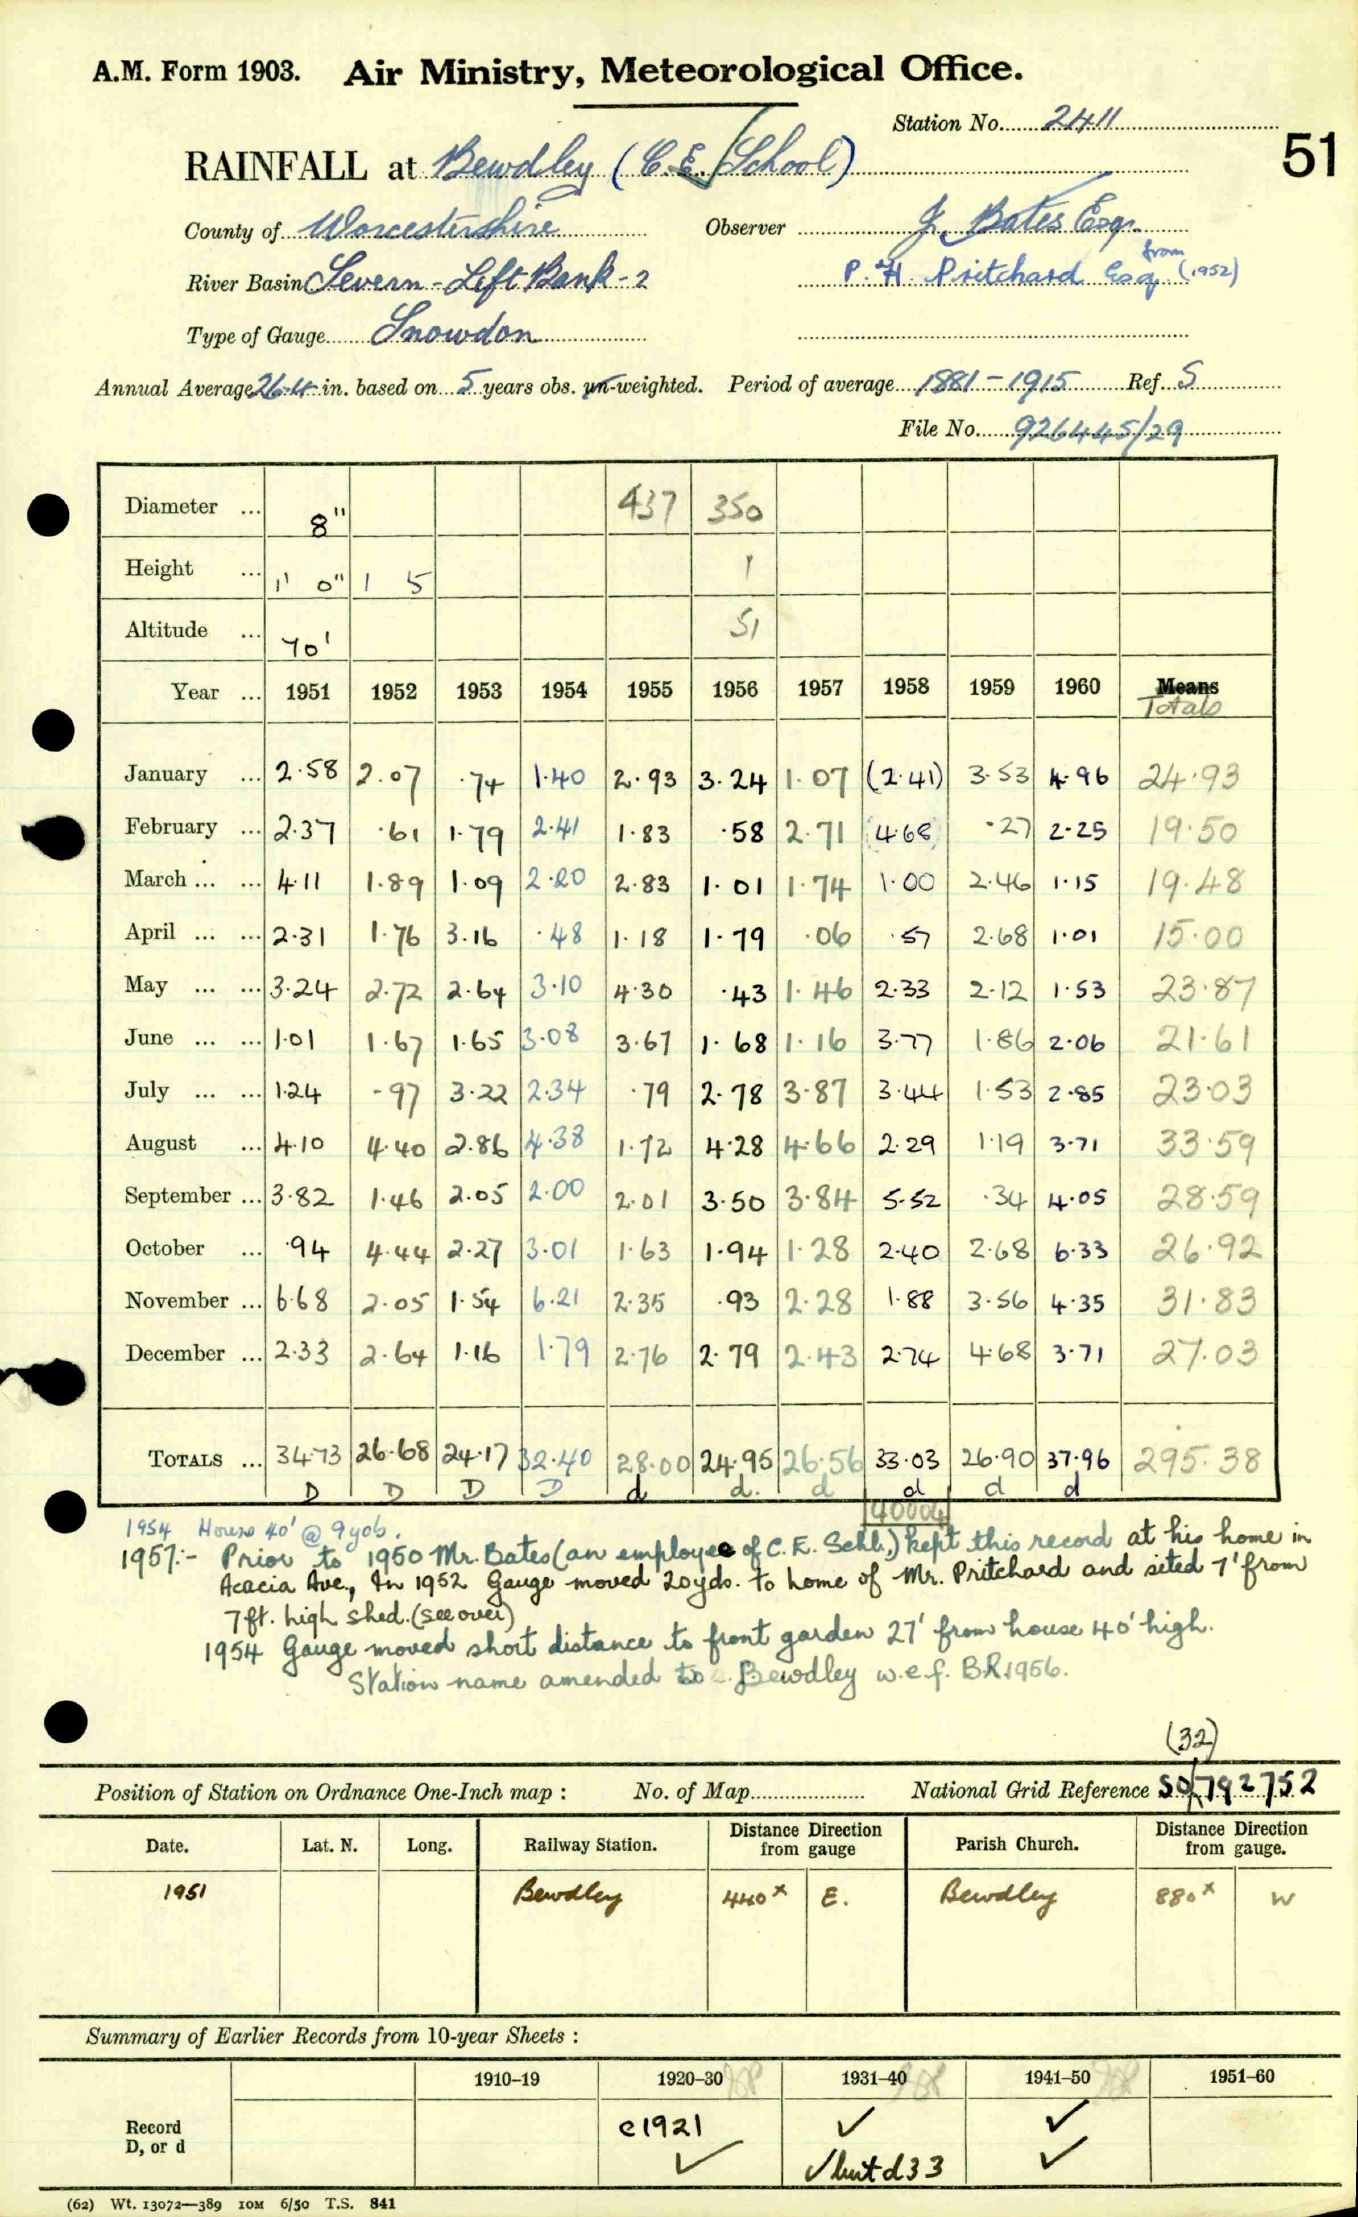 A.M. Form 1903. Air Ministry, Meteorological Office.
Station No. 2411
51
RAINFALL at Bewdley (C.E. School)
County of Worcestershire Observer J. Bates Esq.
River Basin Severn - Left Bank - 2 P. H. Pritchard Esq from (1952)
Type of Gauge Snowdon
Annual Average 26.4 in. based on 5 years obs. un-weighted. Period of average 1881-1915 Ref. S
File No. 926445/29
Diameter ... 8" 437 350
Height ... 1' 0" 1 5 1
Altitude ... 70' 51
Year ... 1951 1952 1953 1954 1955 1956 1957 1958 1959 1960 Means Totals
January ... 2.58 2.07 .74 1.40 2.93 3.24 1.07 (2.41) 3.53 4.96 24.93
February ... 2.37 .61 1.79 2.41 1.83 .58 2.71 (4.68) .27 2.25 19.50
March ... ... 4.11 1.89 1.09 2.20 2.83 1.01 1.74 1.00 2.46 1.15 19.48
April ... ... 2.31 1.76 3.16 .48 1.18 1.79 .06 .57 2.68 1.01 15.00
May ... ... 3.24 2.72 2.64 3.10 4.30 .43 1.46 2.33 2.12 1.53 23.87
June ... ... 1.01 1.67 1.65 3.08 3.67 1.68 1.16 3.77 1.86 2.06 21.61
July ... ... 1.24 .97 3.22 2.34 .79 2.78 3.87 3.44 1.53 2.85 23.03
August ... 4.10 4.40 2.86 4.38 1.72 4.28 4.66 2.29 1.19 3.71 33.59
September ... 3.82 1.46 2.05 2.00 2.01 3.50 3.84 5.52 .34 4.05 28.59
October ... .94 4.44 2.27 3.01 1.63 1.94 1.28 2.40 2.68 6.33 26.92
November ... 6.68 2.05 1.54 6.21 2.35 .93 2.28 1.88 3.56 4.35 31.83
December ... 2.33 2.64 1.16 1.79 2.76 2.79 2.43 2.74 4.68 3.71 27.03
TOTALS ... 34.73 26.68 24.17 32.40 28.00 24.95 26.56 33.03 26.90 37.96 295.38
D D D D d d. d d d d
1954 House 40' @ 9yds.
1957:- Prior to 1950 Mr. Bates (an employee of C.E. Schl.) kept this record at his home in
Acacia Ave., In 1952 Gauge moved 20yds. to home of Mr. Pritchard and sited 7' from
7ft. high shed. (see over)
1954 Gauge moved short distance to front garden 27' from house 40' high.
Station name amended to Bewdley w.e.f. B.R.1956.
(32)
Position of Station on Ordnance One-Inch map : No. of Map National Grid Reference SO/792752
Date. Lat. N. Long. Railway Station. Distance from Direction gauge Parish Church. Distance from Direction gauge.
1951 Bewdley 440x E. Bewdley 880x W
Summary of Earlier Records from 10-year Sheets :
1910–19 1920–30 1931–40 1941–50 1951–60
Record c1921 ✓ ✓
D, or d ✓ ✓ but d33 ✓
(62) Wt. 13072—389 10M 6/50 T.S. 841